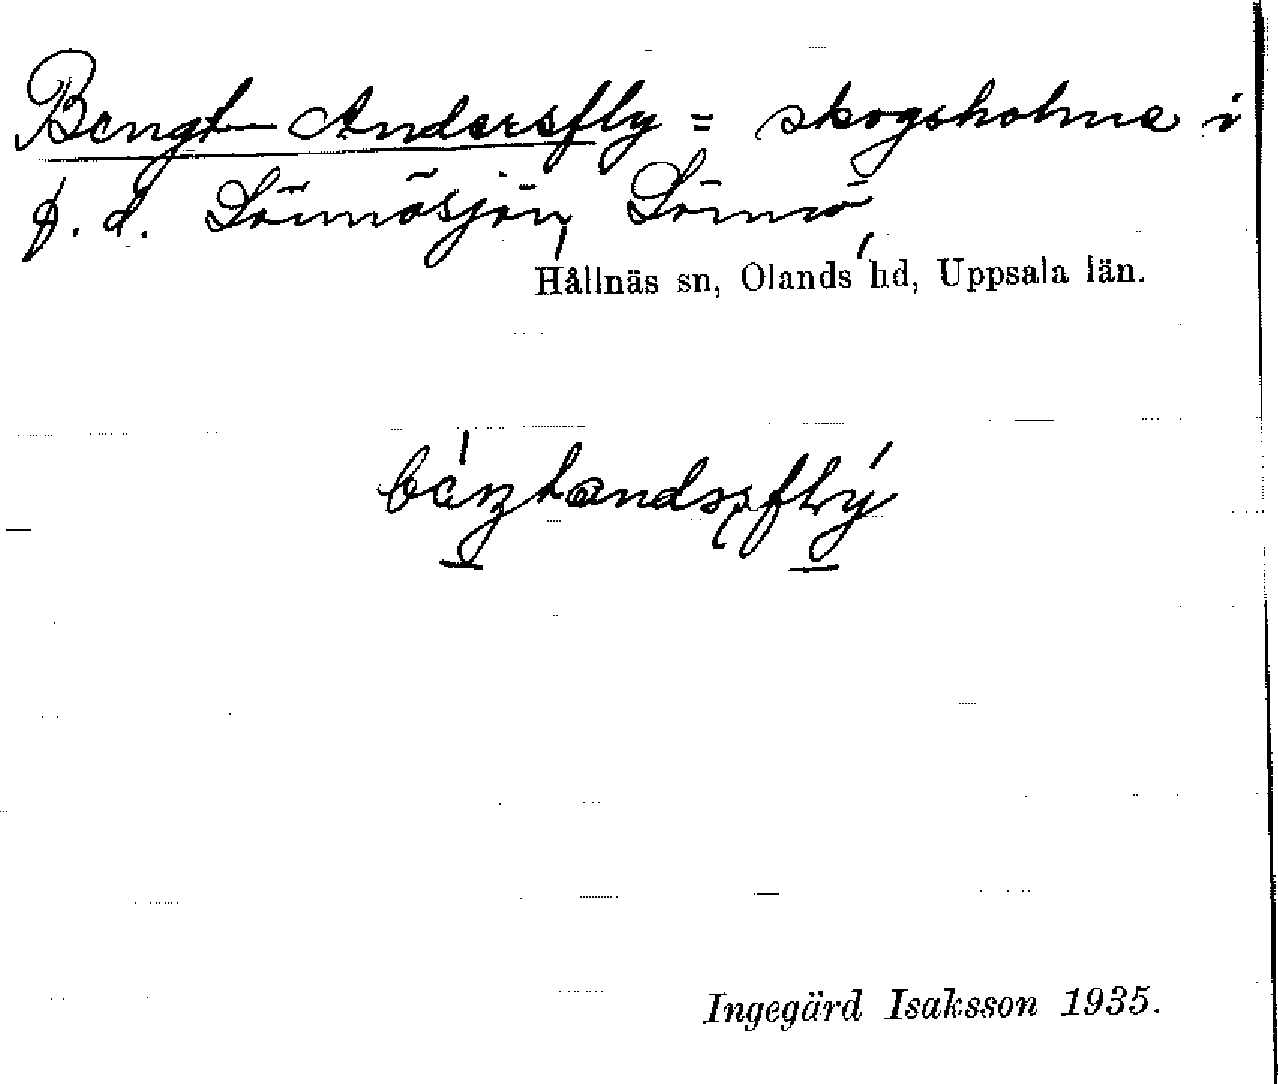 Bengt-Andersfly = skogsholme i
f. d. Sörmösjön, Sörmö,
Hållnäs sn, Olands hd, Uppsala län.
Ingegärd Isaksson 1935.